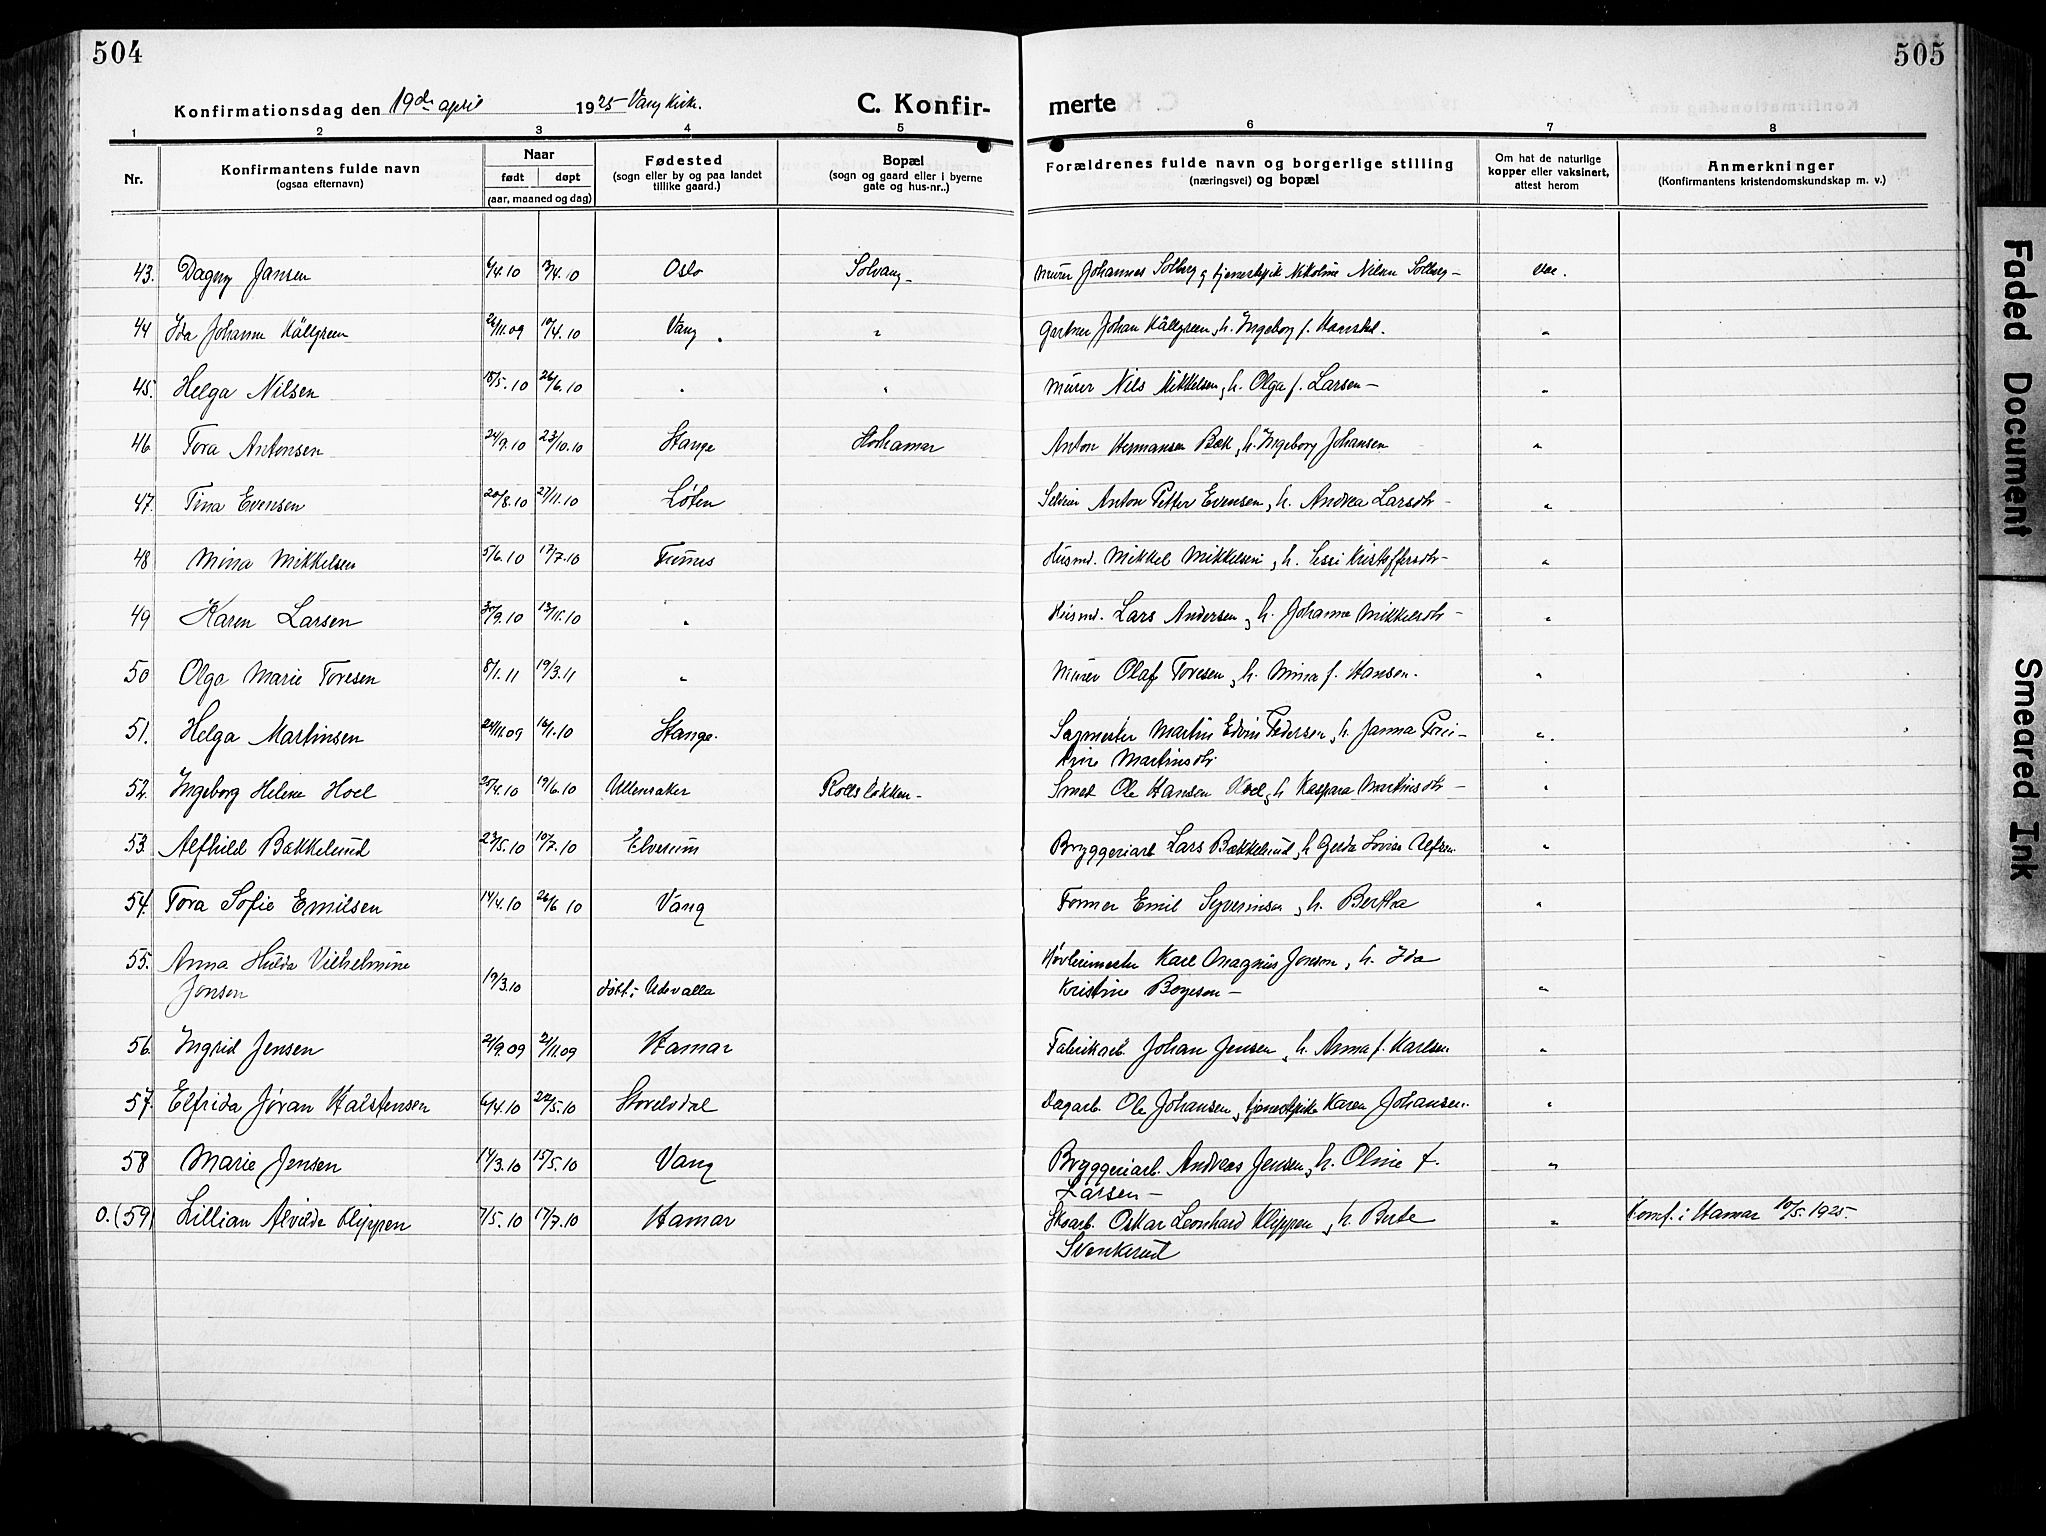 504
505
Konfirmationsdag den 19de april 1925 Vang kirk.
C. Konfir-
merte
1 2 3 4 5 6 7 8
Nr.
Konfirmantens fulde navn
(ogsaa efternavn)
Naar
født døpt
(aar, maaned og dag)
Fødested
(sogn eller by og paa landet
tillike gaard.)
Bopæl
(sogn og gaard eller i byerne
gate og hus-nr..)
Forældrenes fulde navn og borgerlige stilling
(næringsvei) og bopæl
Om hat de naturlige
kopper eller vaksinert,
attest herom
Anmerkninger
(Konfirmantens kristendomskundskap m. v.)
43. Dagny Jansen 6/4.10 /4.10 Oslo Solvang - Murer Johannes Solberg og tjenestepik Nikoline Nilsen Solberg - vac.
44 Ida Johanne Källgreen 26/11.09 10/4.10 Vang " Gartner Johan Källgreen, h. Ingeborg f. "
45. Helga Nilsen 18/5.10 26/6.10 " " Murer Nils Mikkelsen, h. Olga f. Larsen - "
46 Tora Antonsen 24/9.10 23/10.10 Stange Storhamar Anton Hermansen Bæk, h. Ingeborg Johansen "
47. Tina Evensen 20/8.10 27/11.10 Løten Anton Petter Evensen, h. Andrea Larsdtr - "
48 Mina Mikkelsen 5/6.10 17/7.10 Furnes Husmd. Mikkel Mikkelsen, h. Sessi Kristoffersdtr - "
49 Karen Larsen 30/9.10 13/11.10 " Husmd. Lars Andersen, h. Johanne Mikkelsdtr - "
50 Olga Marie Toresen 8/1.11 19/3.11 " Murer Olaf Toresen, h. Mina f. Hansen. "
51. Helga Martinsen 24/11.09 16/1.10 Stange. Sagmester Martin Edvin Pedersen, h. Janna -
Martinsdtr
52. Ingeborg Helene Hoel 25/4.10 19/6.10 Ullensaker Rollsløkken - Smed Ole Hansen Hoel, h Kaspara Martinsdtr - "
53. Alfhild Bækkelund 23/5.10 10/7.10 Elverum Bryggeriarb. Lars Bækkelund, h Gerda Lovise "
54. Tora Sofie Emilsen 14/4.10 26/6 10 Vang Former Emil Syverinsen, h. Bertha "
55. Anna Hulda Vilhelmine Høvlerimester Karl Magnus Jonson, h. Ida
Jonsen 19/3.10 døbt i Udevalla Kristine Bogeson - "
56. Ingrid Jensen 21/9.09 21/11.09 Hamar Fabrikarb. Johan Jensen, h. Anna f. Karlsen "
57. Elfrida Jøran Halstensen 6/4.10 22/5.10 Storelvdal Dagarb. Ole Johansen, tjenestepike Karen Johansen. "
58 Marie Jensen 14/3.10 15/5.10 Vang Bryggeriarb. Andreas Jensen, h. Oline f. "
Larsen -
0. (59) Lillian Alvilde Klippen 7/5.10 17/7.10 Hamar Skoarb. Oskar Leonhard Klippen, h. Berte " Konf. i Hamar 10/5.1925.
Svenkerud
Faded Document
Smeared Ink